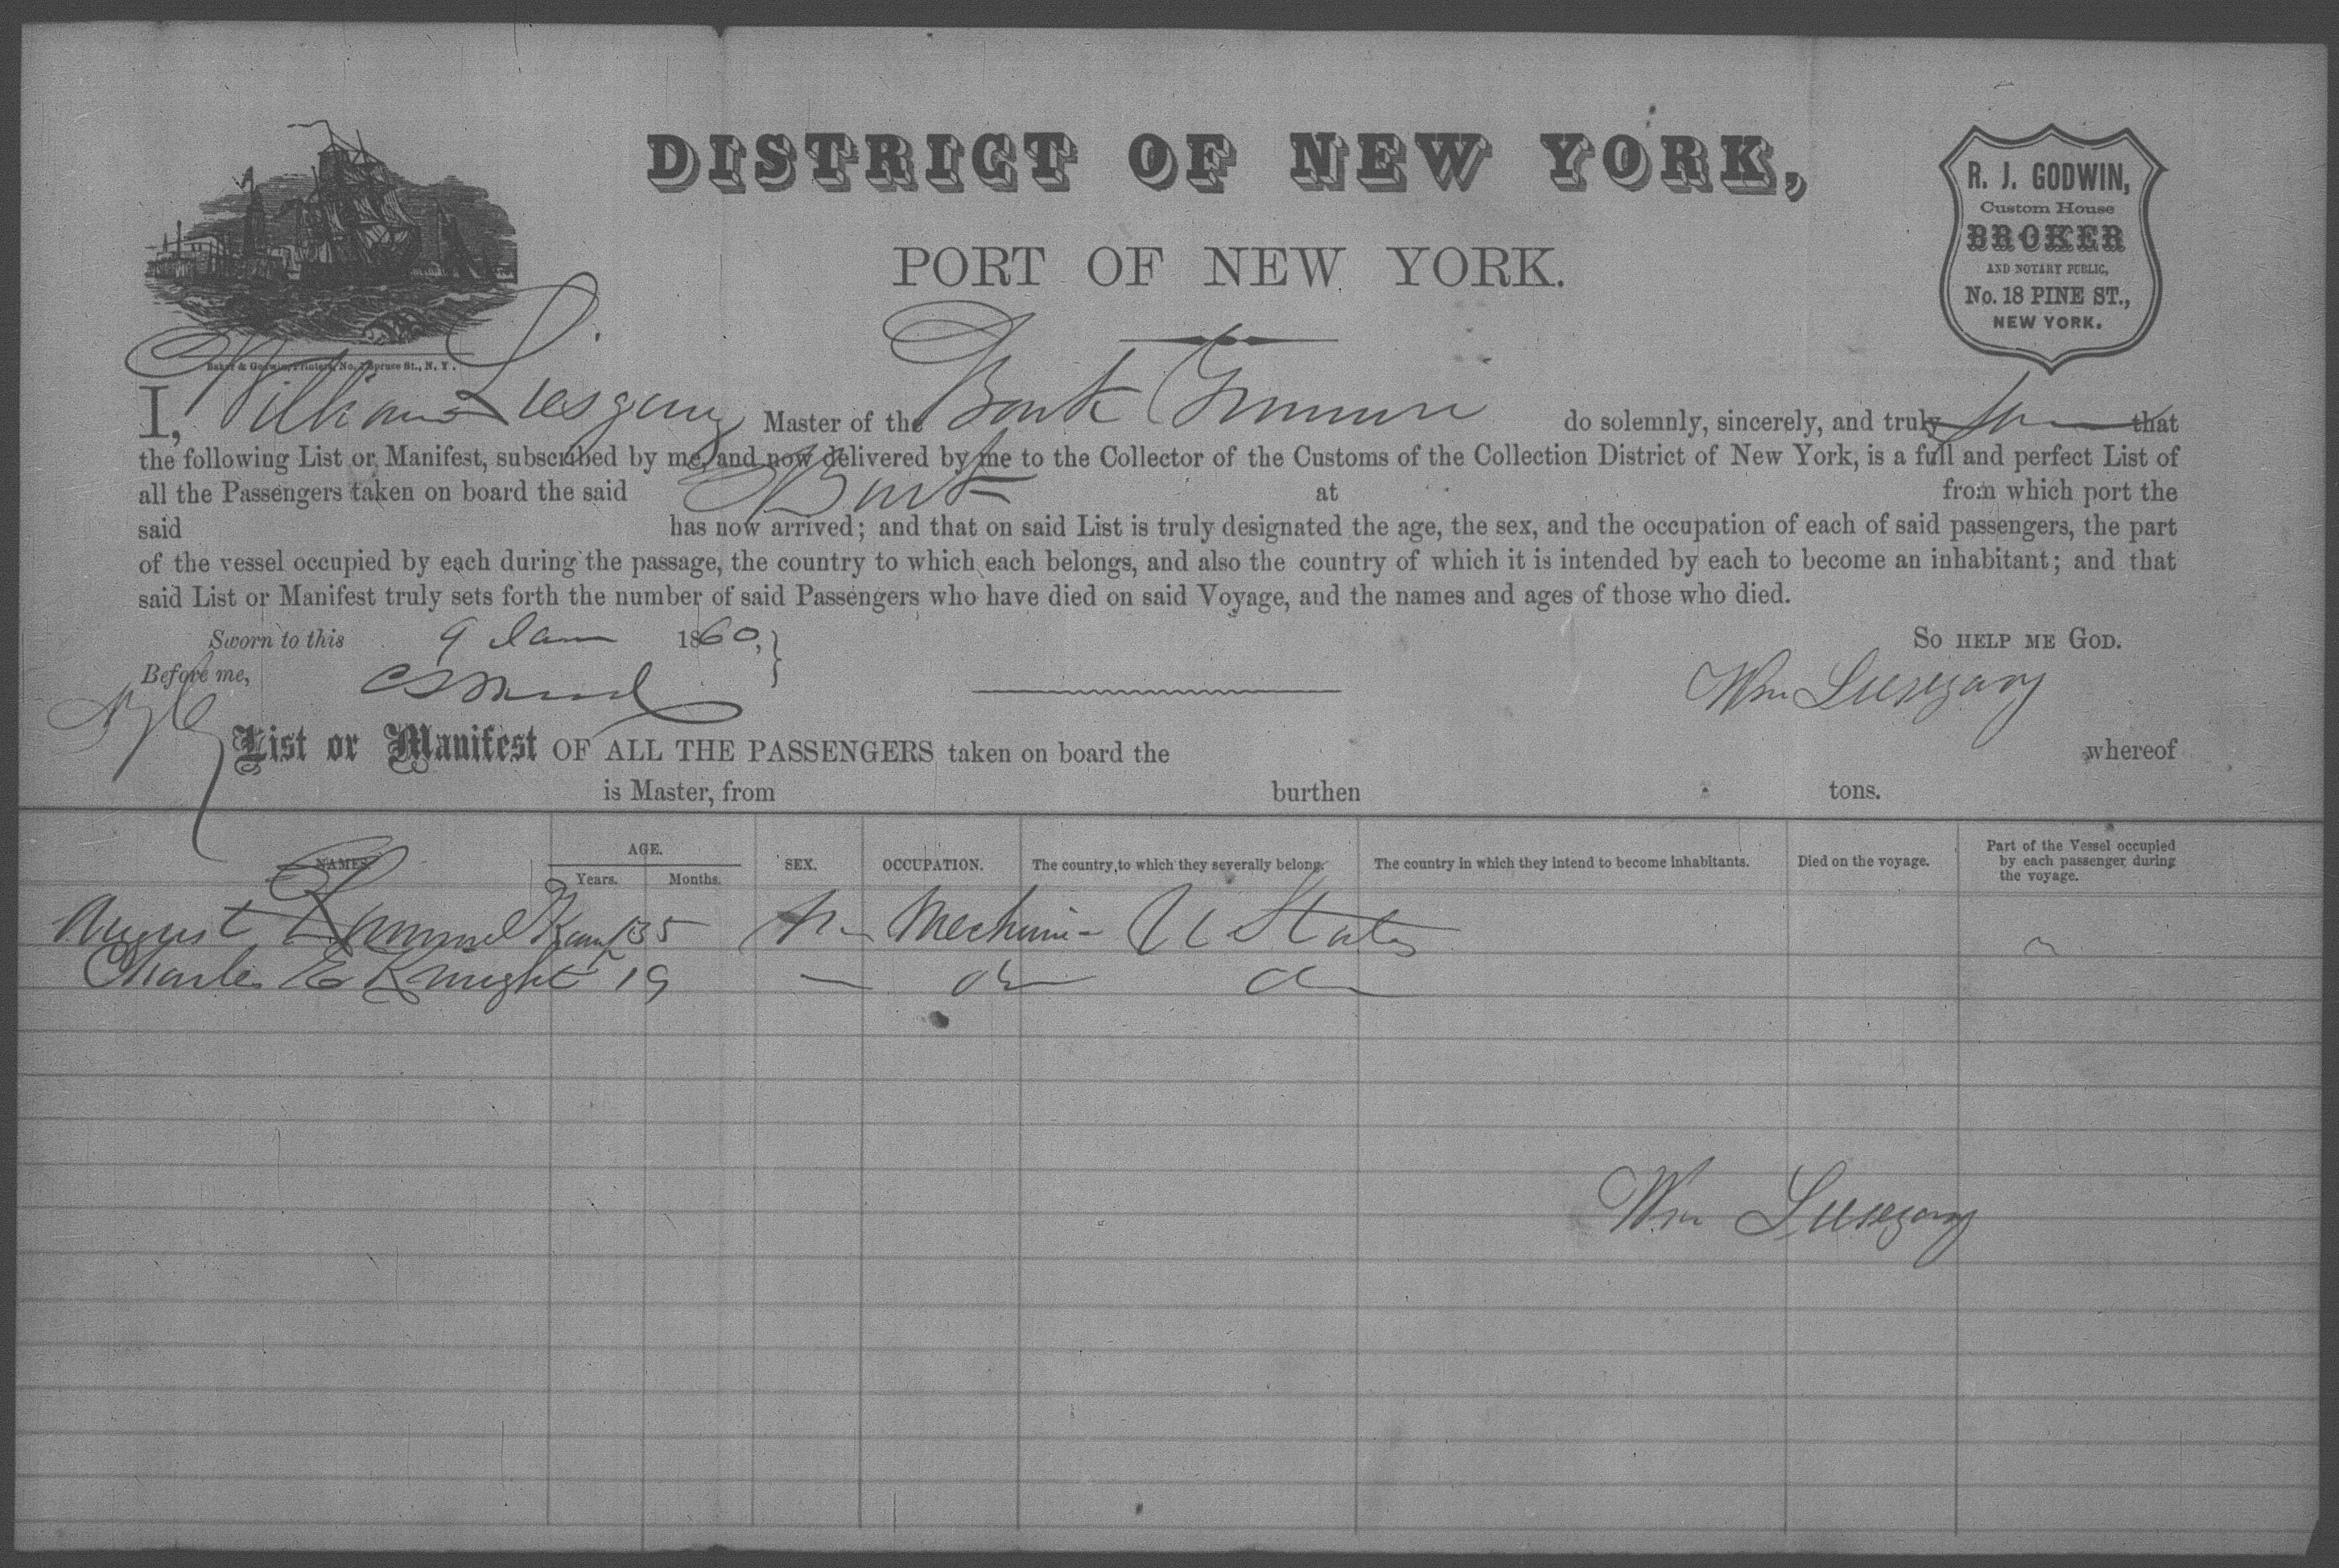 DISTRICT OF NEW YORK,
PORT OF NEW YORK.
R. J. GODWIN,
Custom House
BROKER
AND NOTARY PUBLIC,
No. 18 PINE ST.,
NEW YORK.
Baker & Godwin, Printers, No. 1 Spruce St., N. Y.
I, William Master of the Bark do solemnly, sincerely, and truly that
the following List or Manifest, subscribed by me, and now delivered by me to the Collector of the Customs of the Collection District of New York, is a full and perfect List of
all the Passengers taken on board the said Bark at from which port the
said has now arrived; and that on said List is truly designated the age, the sex, and the occupation of each of said passengers, the part
of the vessel occupied by each during the passage, the country to which each belongs, and also the country of which it is intended by each to become an inhabitant; and that
said List or Manifest truly sets forth the number of said Passengers who have died on said Voyage, and the names and ages of those who died.
Sworn to this 9 Jan 1860,
So HELP ME GOD.
Before me,
Wm
List or Manifest OF ALL THE PASSENGERS taken on board the whereof
is Master, from burthen tons.
NAMES. AGE. Years. Months. SEX. OCCUPATION. The country to which they severally belong. The country in which they intend to become inhabitants. Died on the voyage. Part of the Vessel occupied by each passenger during the voyage.
August 35 M Mechanic U States
Charles E Knight 19 — do do
Wm